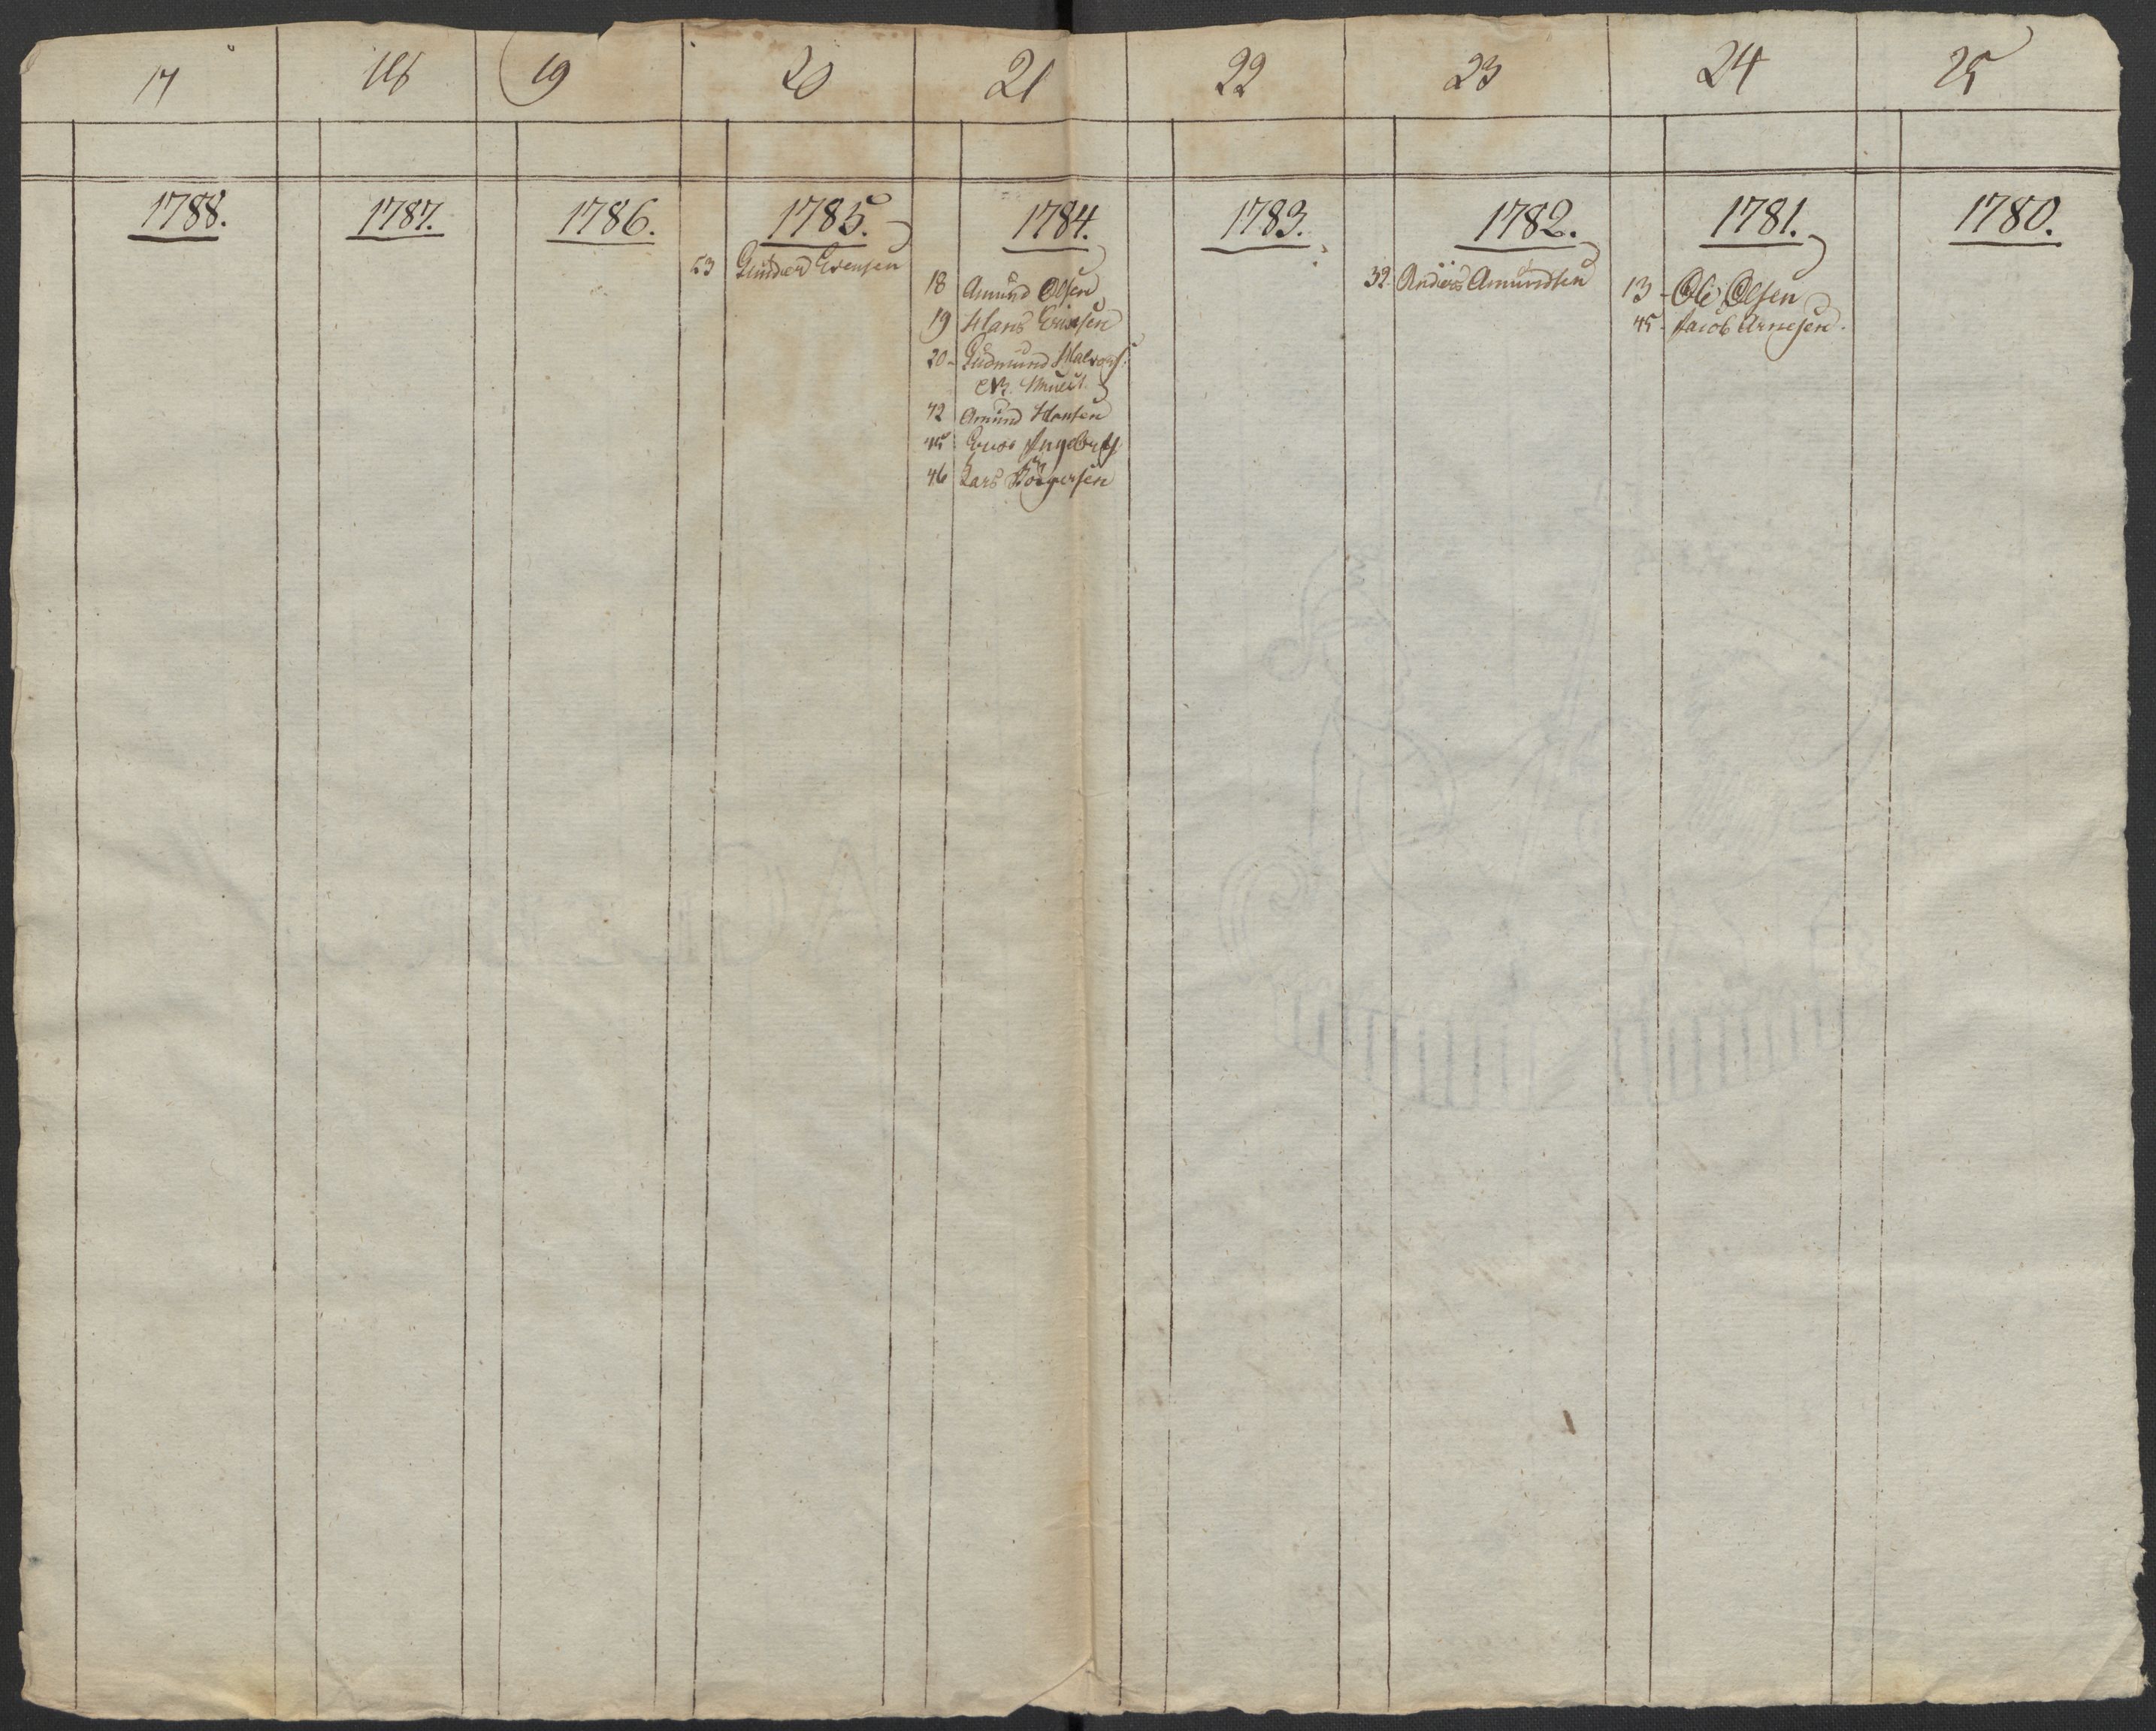 17
18
19
20
21
22
23
24
25
1788.
1787.
1786.
1785.
53 Gunder Evensen
1784.
18 Amund Olsen
19 Hans Ericksen
20 - Gudmund Halvors:
42 Amund Hansen
45 Ingebr
46 Lars
1783.
1782.
32. Anders Amundsen
1781.
13 - Ole Olsen
45. Jacob Arnesen.
1780.